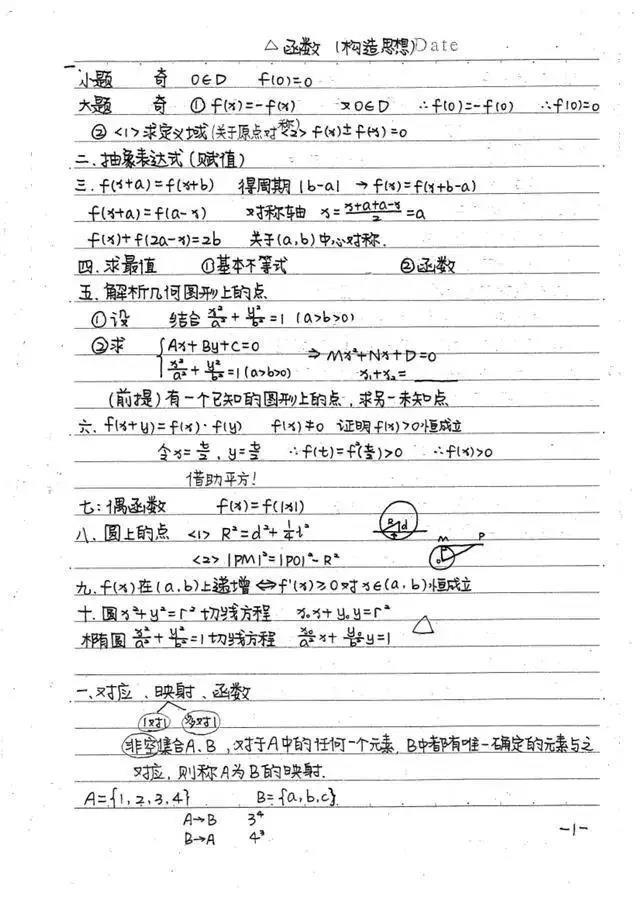 △函数 (构造思想) Date
一.
小题 奇 0∈D f(0)=0
大题 奇 ① f(x)=-f(x) 又0∈D ∴f(0)=-f(0) ∴f(0)=0
② <1>求定义域(关于原点对称) <2> f(x)±f(-x)=0
二.抽象表达式(赋值)
三.f(x+a)=f(x+b) 得周期|b-a| → f(x)=f(x+b-a)
f(x+a)=f(a-x) 对称轴 x=(x+a+a-x)/2=a
f(x)+f(2a-x)=2b 关于(a,b)中心对称.
四.求最值 ①基本不等式 ②函数
五.解析几何图形上的点
①设 结合 x²/a²+y²/b²=1 (a>b>0)
②求 { Ax+By+C=0 ⇒ Mx²+Nx+D=0
x²/a²+y²/b²=1(a>b>0) x₁+x₂=____
(前提)有一个已知的图形上的点,求另一未知点
六.f(x+y)=f(x)·f(y) f(x)≠0 证明f(x)>0恒成立
令x=t/2,y=t/2 ∴f(t)=f²(t/2)>0 ∴f(x)>0
借助平方!
七:偶函数 f(x)=f(|x|)
八.圆上的点 <1> R²=d²+¼l² R d
<2> |PM|²=|PO|²-R² M P
九.f(x)在(a,b)上递增⇔f'(x)≥0对x∈(a,b)恒成立
十.圆x²+y²=r²切线方程 x₀x+y₀y=r²
椭圆x²/a²+y²/b²=1切线方程 x₀/a² x+y₀/b² y=1 △
一.对应、映射、函数
1对1 多对1
非空集合A、B,对于A中的任何一个元素,B中都有唯一确定的元素与之
对应,则称A为B的映射.
A={1,2,3,4} B={a,b,c}
A→B 3⁴
B→A 4³
-1-